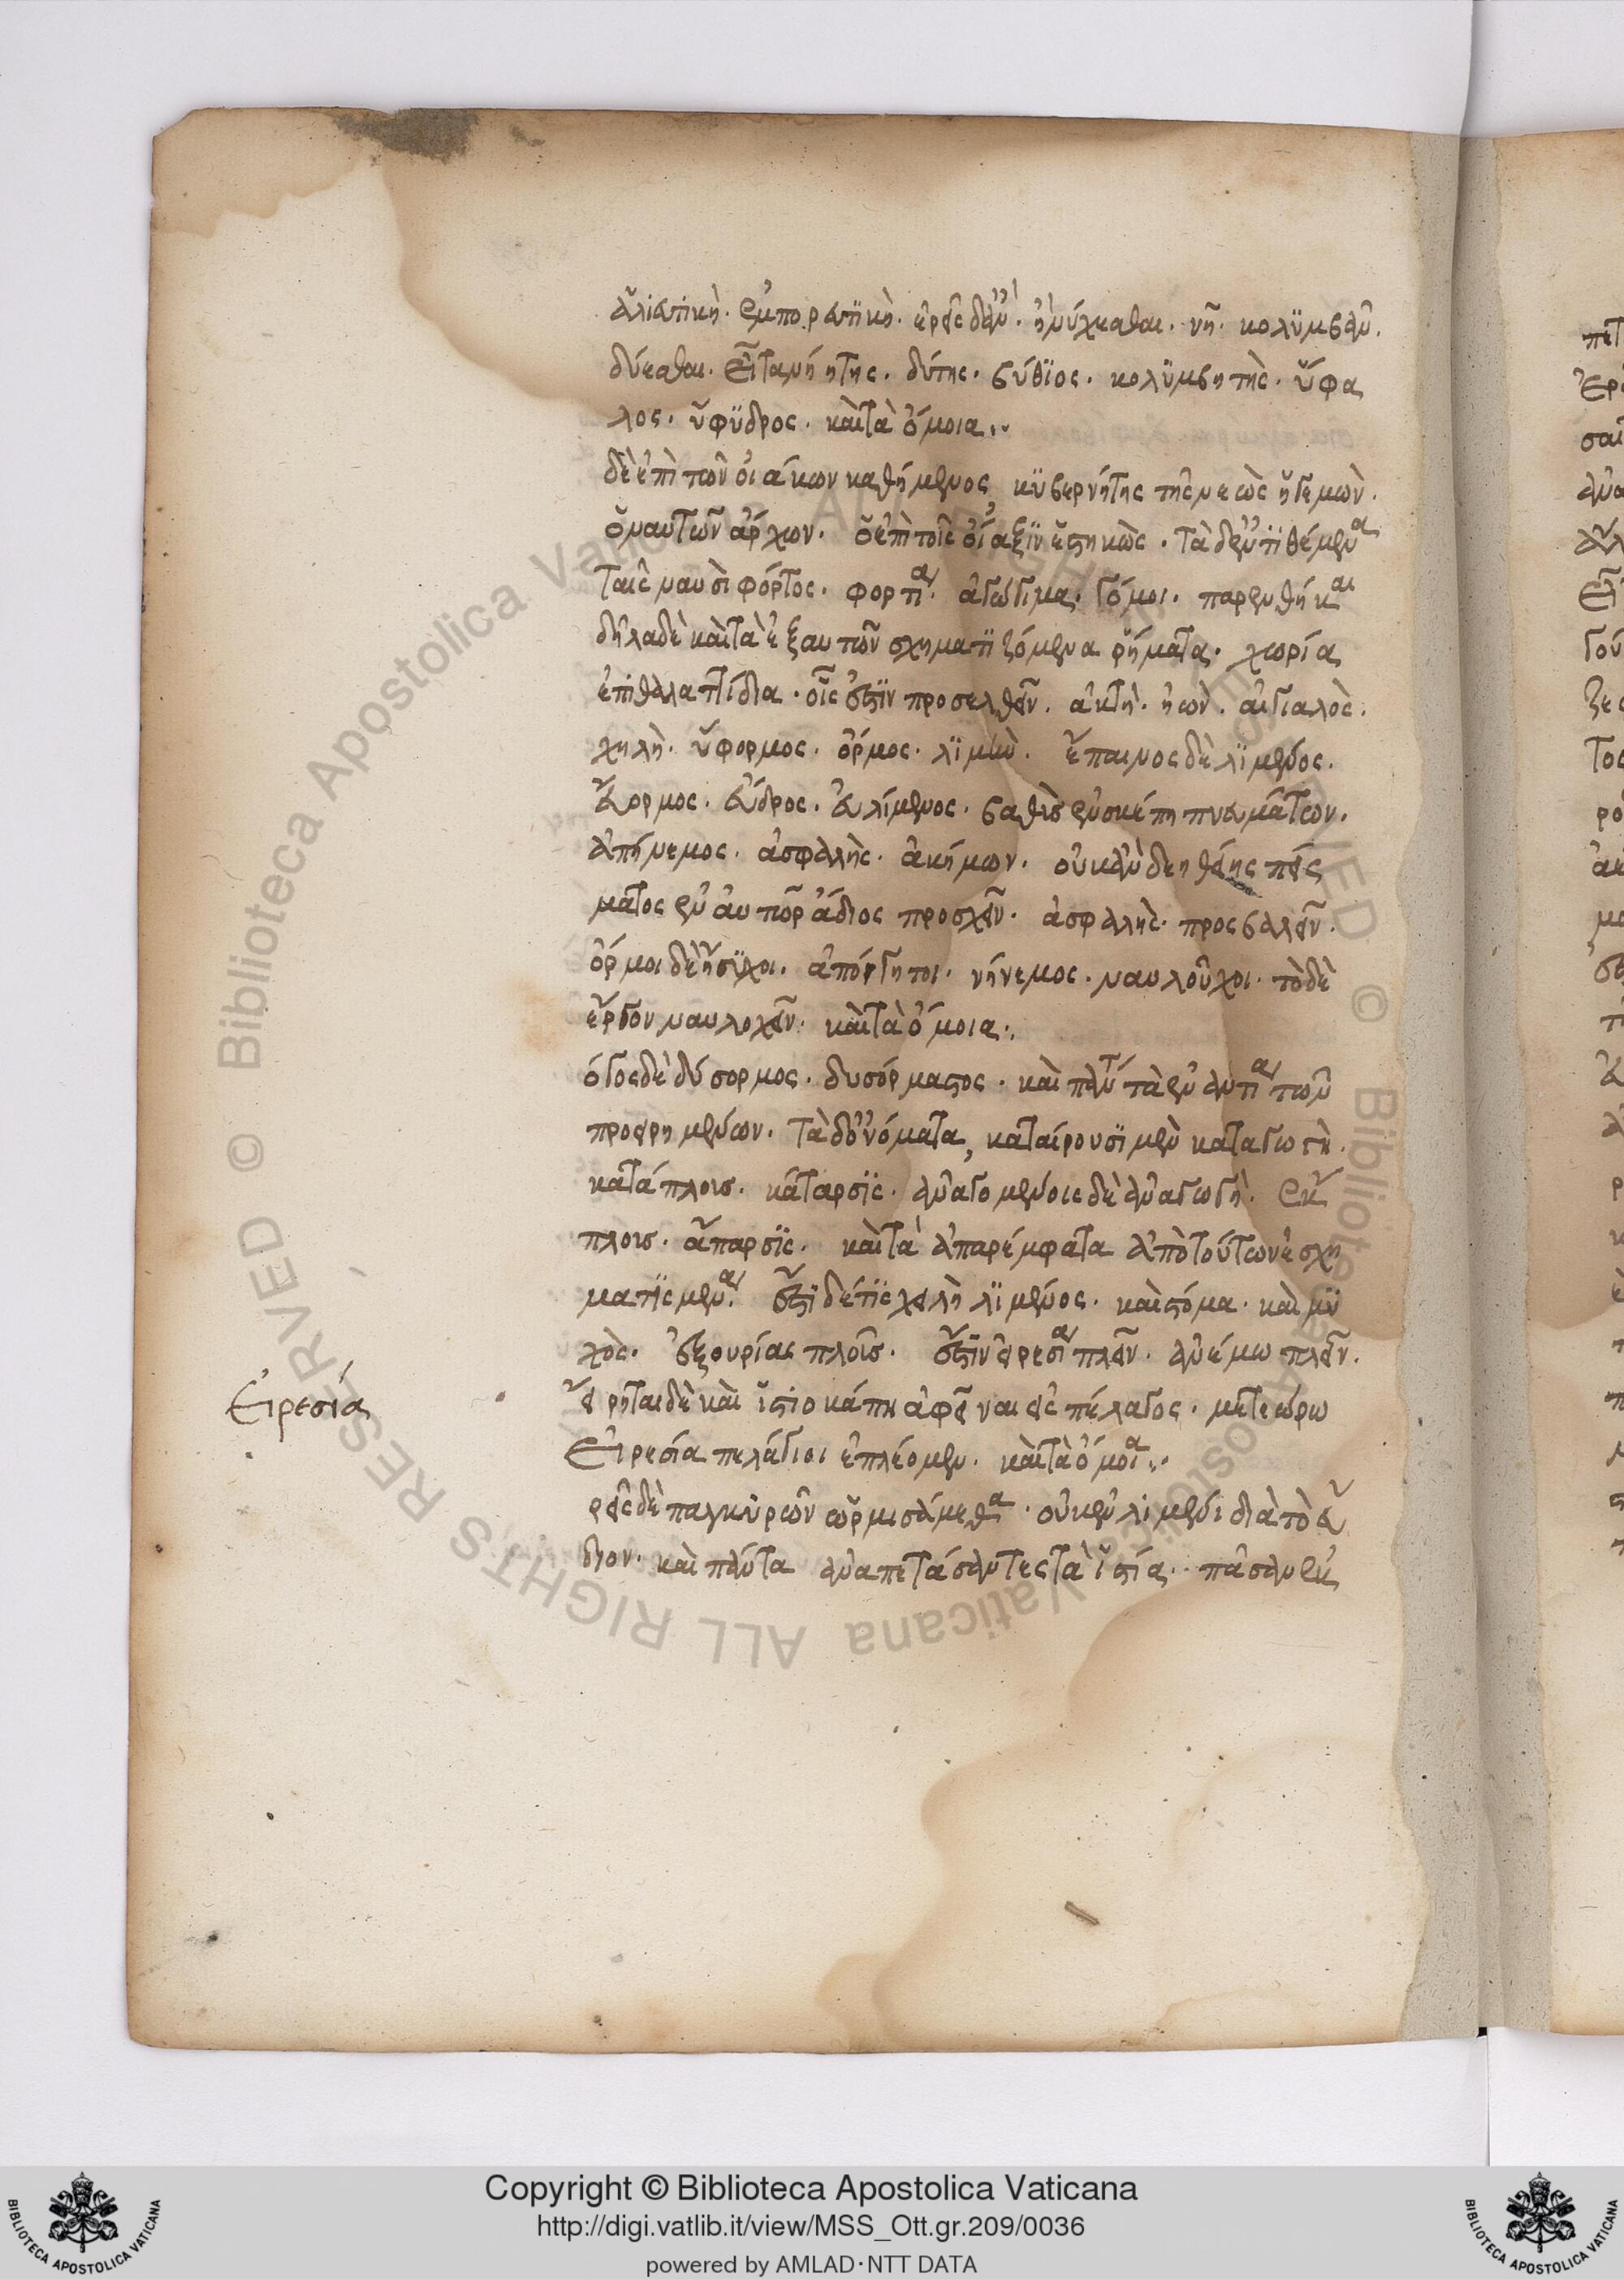 ἁλιευτικὴ. ἐμπορευτικὴ. ἐρεῖς δ' ἂν. νήχεσθαι. νεῖν. κολυμβᾶν.
δύεσθαι. δύτης. βύθιος. κολυμβητὴς. ὕφα
λος. ὕφυδρος. καὶ τὰ ὅμοια..
δὲ ἐπὶ τῶν οἰάκων καθήμενος κυβερνήτης τῆς νεὼς ἡγεμὼν.
ὁ ναυτῶν ἄρχων. ὁ ἐπὶ τοῖς οἴαξιν ἑστηκὼς. τὰ δ' ἐντιθέμενα
ταῖς ναυσὶ φόρτος. φορτία. ἀγώγιμα. γόμοι. παρενθήκαι
δηλαδὴ καὶ τὰ ἐξ αὐτῶν σχηματιζόμενα ῥήματα. χωρία
ἐπιθαλαττίδια. οἷς ἔστιν προσελθεῖν. ἀκτὴ. ἠιὼν. αἰγιαλὸς.
χηλὴ. ὕφορμος. ὅρμος. λιμὴν. ἔπαινος δὲ λιμένος.
εὔορμος. εὔδρος. εὐλίμενος. βαθὺς ἐν σκέπῃ πνευμάτων.
ἀπήνεμος. ἀσφαλὴς. ἀκήμων. οὐκ ἂν δεηθείης πείς
ματος ἐν αὐτῷ ῥάδιος προσχεῖν. ἀσφαλὴς προσβαλεῖν.
ὅρμοι δὲ ἥσυχοι. ἀπόρθητοι. νήνεμος. ναυλοῦχοι. τὸ δὲ
ἔργον ναυλοχεῖν. καὶ τὰ ὅμοια.
ὅρμος δὲ δύσορμος. δυσόρμιστος. καὶ πάντα τὰ ἐναντία τῶν
προειρημένων. τὰ δ' ὀνόματα, καταίρουσι μὲν καταγωγὴ.
κατάπλους. κάταρσις. ἀναγομένοις δὲ ἀναγωγὴ. ἔκ
πλους. ἄπαρσις. καὶ τὰ ἀπαρέμφατα ἀπὸ τούτων ἐσχη
ματισμένα. ἔστι δέ τις χηλὴ λιμένος. καὶ στόμα. καὶ μυ
χὸς. ἐξ οὐρίας πλοῦς. ἔστιν εἰρεσία πλεῖν. ἀνέμῳ πλεῖν.
εἴρηται δὲ καὶ ἱστίῳ κώπῃ ἀφεῖναι εἰς πέλαγος. μετεώρῳ
Εἰρεσία
Εἰρεσία πελάγιοι ἐπλέομεν. καὶ τὰ ὅμοια..
ρεῖς δὲ ὡρμισάμεθα. οὐκ ἐν λιμένι διὰ τὸ εὔ
διον. καὶ πάντα ἀναπετάσαντες τὰ ἱστία. πᾶσαν ἐκ
Copyright © Biblioteca Apostolica Vaticana
http://digi.vatlib.it/view/MSS_Ott.gr.209/0036
powered by AMLAD·NTT DATA